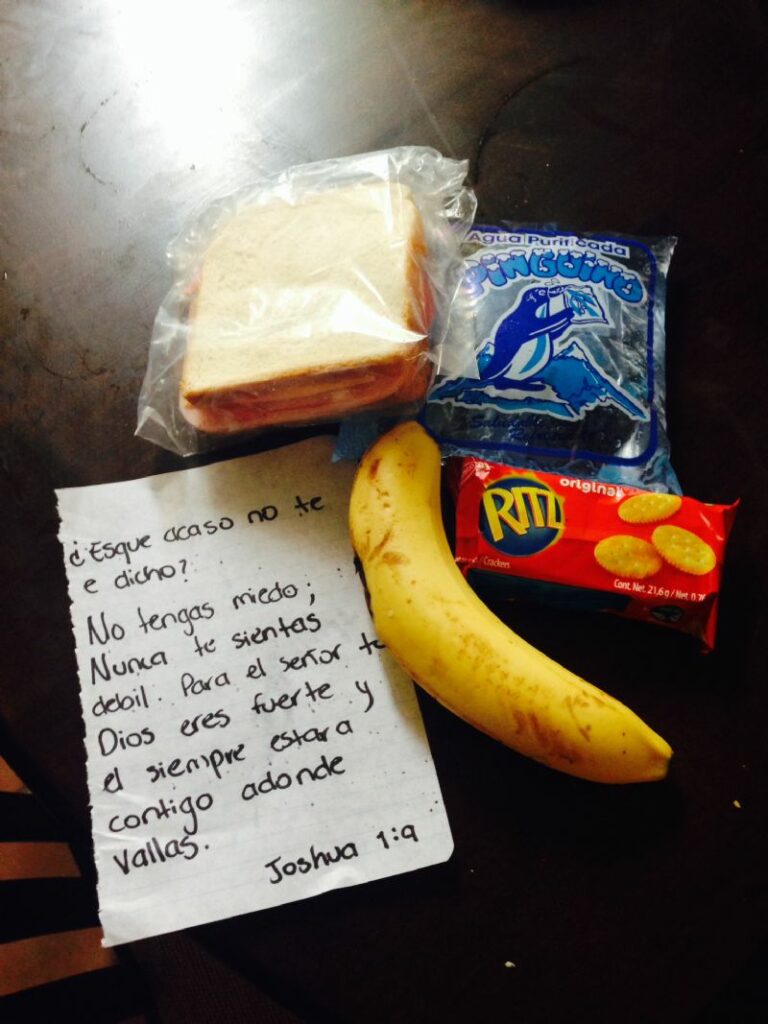 Agua Purificada
PINGÜINO
original
RITZ
Crackers
Cont. Net. 21,6g / Net. 0.76
¿Esque acaso no te
e dicho?
No tengas miedo;
Nunca te sientas
debil. Para el señor tu
Dios eres fuerte y
el siempre estara
contigo adonde
vallas.
Joshua 1:9